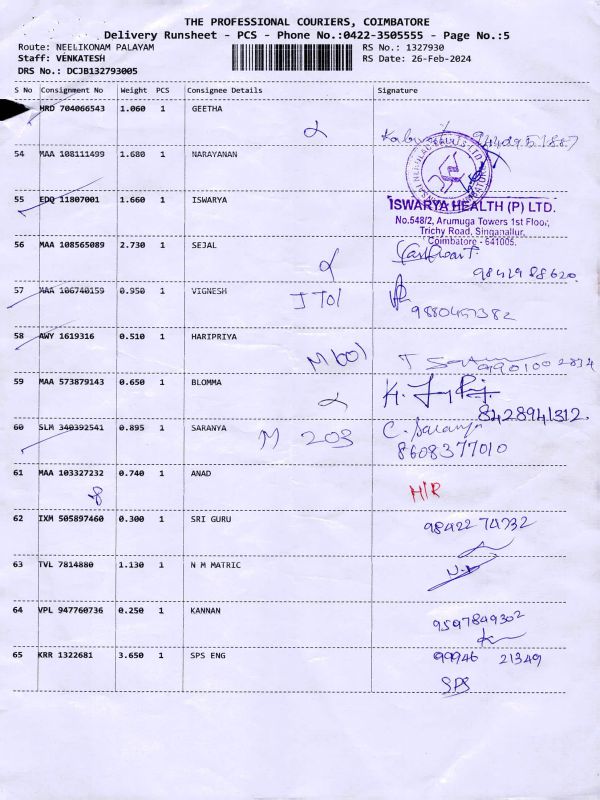 THE PROFESSIONAL COURIERS, COIMBATORE
Delivery Runsheet - PCS - Phone No.:0422-3505555 - Page No.:5
Route: NEELIKONAM PALAYAM RS No.: 1327930
Staff: VENKATESH RS Date: 26-Feb-2024
DRS No.: DCJB132793005
S No Consignment No Weight PCS Consignee Details Signature
HRD 704066543 1.060 1 GEETHA
54 MAA 108111499 1.680 1 NARAYANAN
55 EDQ 11807001 1.660 1 ISWARYA
ISWARYA HEALTH (P) LTD.
No.548/2, Arumuga Towers 1st Floor,
Trichy Road, Singanallur,
Coimbatore - 641005.
56 MAA 108565089 2.730 1 SEJAL
57 MAA 106740159 0.950 1 VIGNESH J T01
9880457382
58 AWY 1619316 0.510 1 HARIPRIYA M 601
59 MAA 573879143 0.650 1 BLOMMA
8428941312.
60 SLM 340392541 0.895 1 SARANYA M 203 C. Saranya
8608377010
61 MAA 103327232 0.740 1 ANAD H/R
62 IXM 505897460 0.300 1 SRI GURU 9842274732
63 TVL 7814880 1.130 1 N M MATRIC
64 VPL 947760736 0.250 1 KANNAN 9597849302
65 KRR 1322681 3.650 1 SPS ENG 99946 21349
SPS